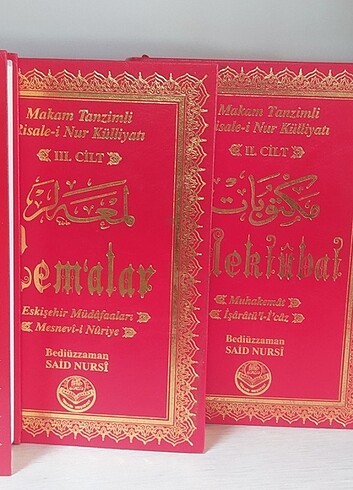 Makam Tanzimli
Risale-i Nur Külliyatı
III. CİLT
لمعه لر
Lem'alar
Eskişehir Müdâfaaları
Mesnevî-i Nûriye
Bediüzzaman
SAİD NURSÎ
Makam Tanzimli
Risale-i Nur Külliyatı
II. CİLT
مكتوبات
Mektûbat
Muhakemât
İşârâtü'l-İ'câz
Bediüzzaman
SAİD NURSÎ